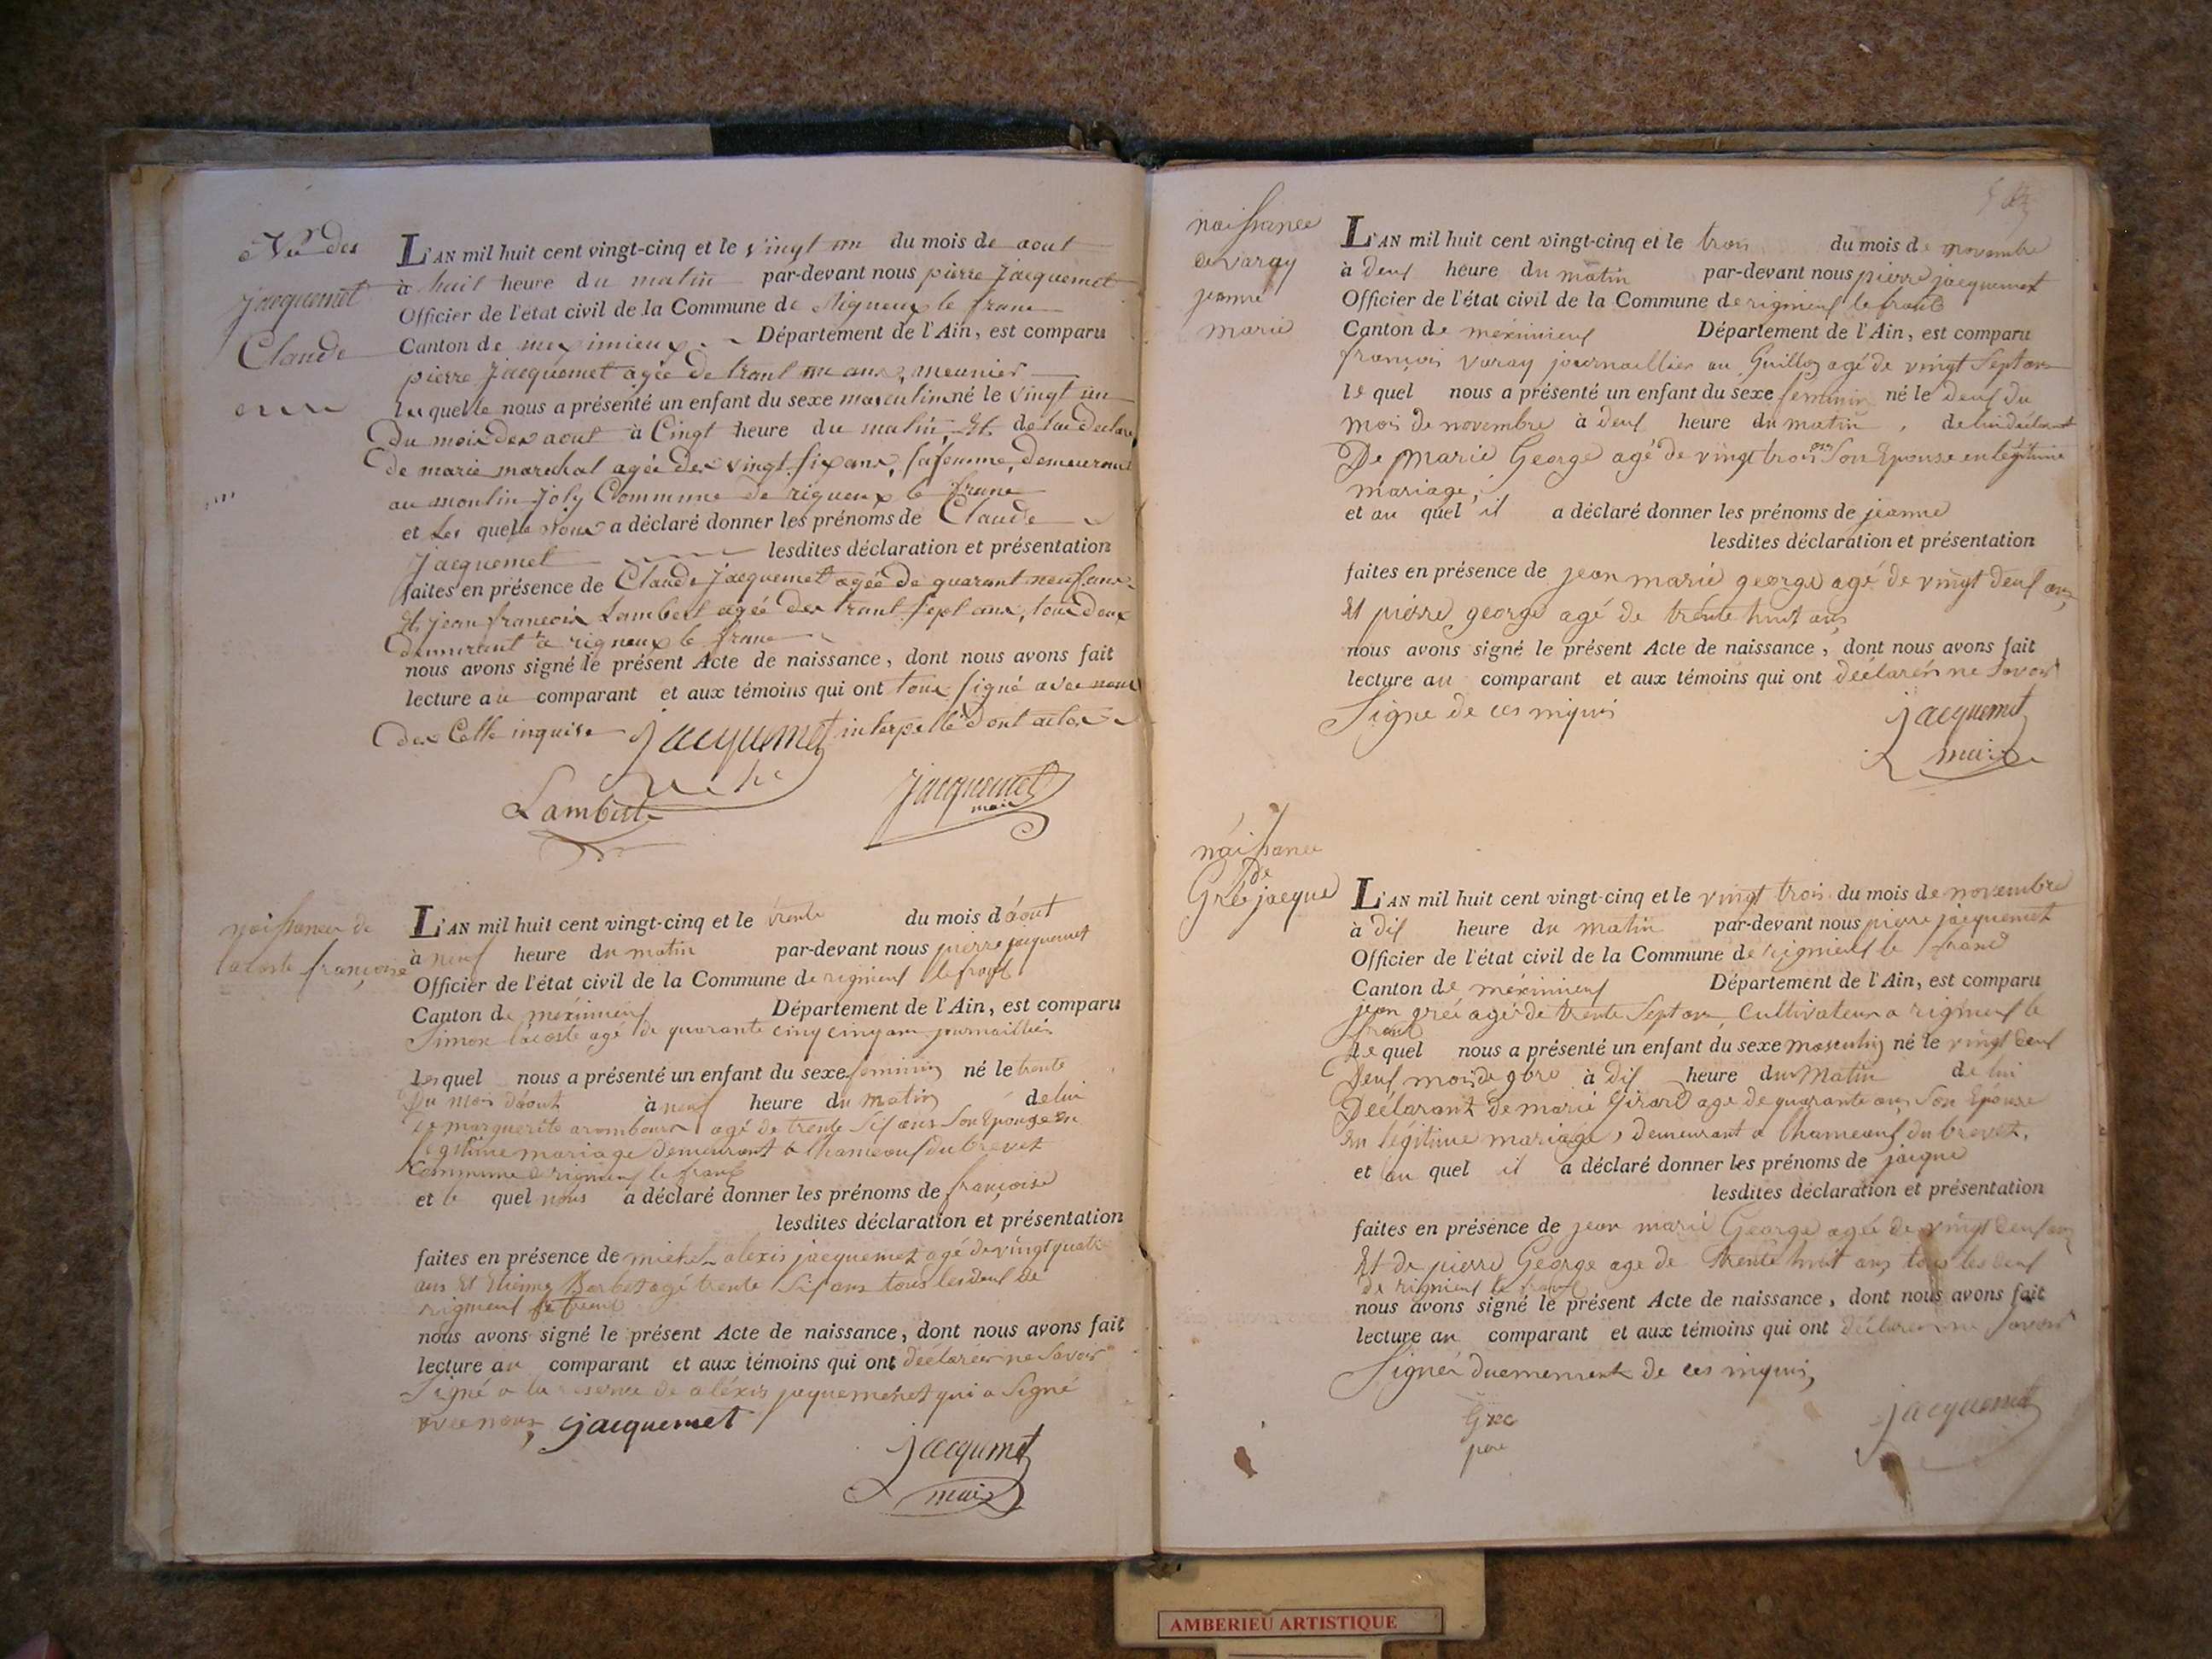 Né des
jacquemet
Claude
L'AN mil huit cent vingt-cinq et le vingt un du mois de aout
à huit heure du matin par-devant nous pierre Jacquemet
Officier de l'état civil de la Commune de Rigneux le franc
Canton de meximieux Département de l'Ain, est comparu
pierre Jacquemet agée de trant un ans, meunier
le quelle nous a présenté un enfant du sexe masculin né le vingt un
du mois des aout à Cingt heure du matin, Et de lui declare
de marie marechal agée des vingt six ans, sa femme, demeurant
au moulin joly Commune de rigneux le franc
et les quelle nous a déclaré donner les prénoms de Claude
jacquemet lesdites déclaration et présentation
faites en présence de Claude jacquemet agée de quarant neuf ans
Et jean francois Lambert agée des trant sept ans, tous deux
demurant a rigneux le franc
nous avons signé le présent Acte de naissance, dont nous avons fait
lecture au comparant et aux témoins qui ont tous signé avec nous
des Celle inquise jacquemet interpellé dont acte
Lambert jacquemet
maire
naissance de
lacoste françoise
L'AN mil huit cent vingt-cinq et le trente du mois d'aout
à neuf heure du matin par-devant nous pierre jacquemet
Officier de l'état civil de la Commune de rignieux le franc
Canton de méximieux Département de l'Ain, est comparu
Simon lacoste agé de quarante cinq cinq ans journaillier
les quel nous a présenté un enfant du sexe féminin né le trente
Du mois d'aout à neuf heure du matin de lui
agé de trente Six ans Son Epouse en
légitime mariage demeurant a lhameaux du brevet
Commune de rignieux le franc
et le quel nous a déclaré donner les prénoms de françoise
lesdites déclaration et présentation
faites en présence de michel alexis jacquemet agé de vingt quatre
ans Et Etienne Barbet agé trente Six ans tous les deux de
rignieux le franc
nous avons signé le présent Acte de naissance, dont nous avons fait
lecture au comparant et aux témoins qui ont déclarer ne Savoir
Signé a la reserve de aléxis jaquemenet qui a Signé
avec nous, jacquemet
jacqumet
maire
naissance
de varay
jeanne
marie
L'AN mil huit cent vingt-cinq et le trois du mois de novembre
à deux heure du matin par-devant nous pierre jacquemet
Officier de l'état civil de la Commune de rignieux le franc
Canton de méximieux Département de l'Ain, est comparu
françois varay journaillier au Guillon agé de vingt Sept ans
le quel nous a présenté un enfant du sexe féminin né le deux du
mois de novembre à deux heure du matin, de lui déclarant
De marie George agé de vingt trois ans Son Epouse en légitime
mariage,
et au quel il a déclaré donner les prénoms de jeanne
lesdites déclaration et présentation
faites en présence de jean marie george agé de vingt deux ans
Et pierre george agé de trente huit ans
nous avons signé le présent Acte de naissance, dont nous avons fait
lecture au comparant et aux témoins qui ont déclarés ne Savoir
Signe de ces inquis jacquemet
maire
naissance
de
Gréé jacque
L'AN mil huit cent vingt-cinq et le vingt trois du mois de novembre
à dix heure du matin par-devant nous pierre jacquemet
Officier de l'état civil de la Commune de rignieux le franc
Canton de méximieux Département de l'Ain, est comparu
jean gréé agé de trente Sept ans, Cultivateur a rignieux le
franc
le quel nous a présenté un enfant du sexe masculin né le vingt deux
Deux mois de 9bre à dix heure du Matin de lui
Déclarant de marie Girard age de quarante ans Son Epouse
en légitime mariage, demeurant a lhameaux du brevet,
et au quel il a déclaré donner les prénoms de jacque
lesdites déclaration et présentation
faites en présence de jean marie George agée de vingt deux ans
Et de pierre George age de trente huit ans tous les deux
de rignieux le franc
nous avons signé le présent Acte de naissance, dont nous avons fait
lecture au comparant et aux témoins qui ont déclarer ne Savoir
Signer duemement de ces inquis,
jacquemet
père
AMBERIEU ARTISTIQUE